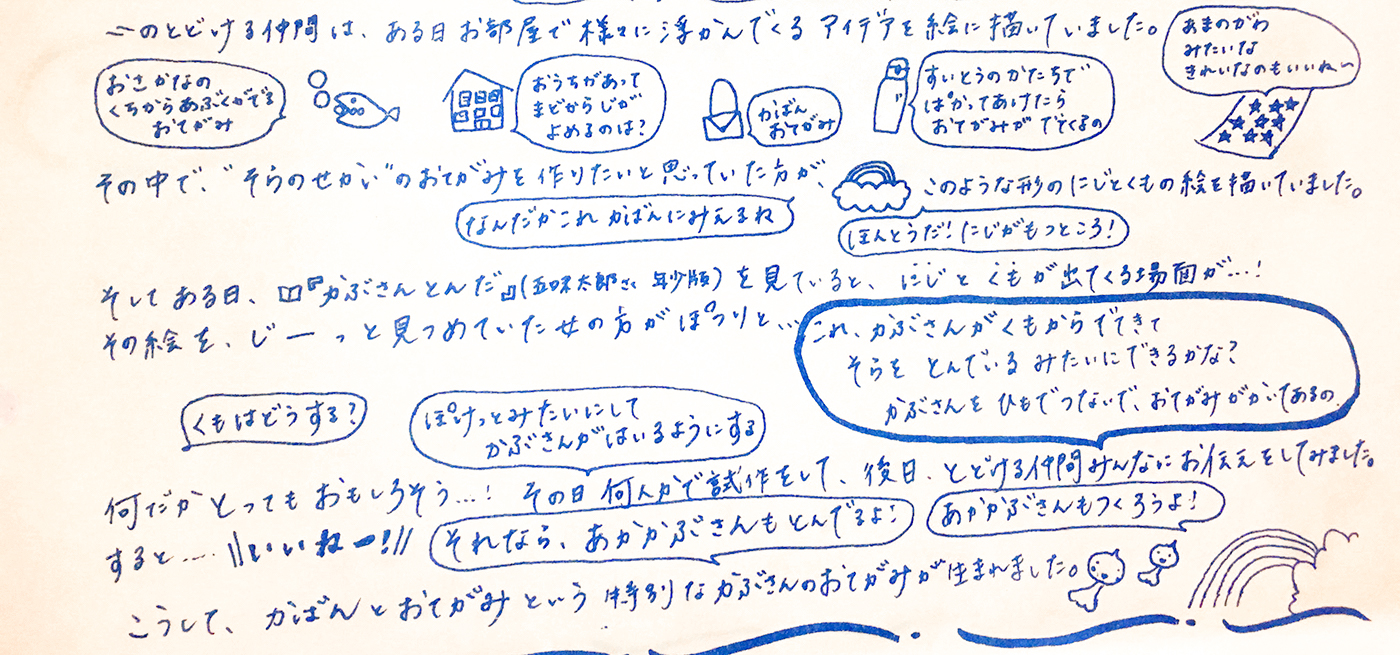 このとどける仲間は、ある日お部屋で様々に浮かんでくるアイデアを絵に描いていました。
あまのがわ
みたいな
きれいなのもいいね〜
おさかなの
くちからあぶくがでる
おてがみ
おうちがあって
まどからじが
よめるのは?
かばん
おてがみ
すいとうのかたちで
ぱかってあけたら
おてがみがでてくるの
その中で、"そらのせかい"のおてがみを作りたいと思っていた方が、
このような形のにじとくもの絵を描いていました。
なんだかこれかばんにみえるね
ほんとうだ!にじがもつところ!
そしてある日、『かぶさんとんだ』(五味太郎さく 年少版)を見ていると、にじとくもが出てくる場面が…!
その絵を、じーっと見つめていた女の方がぽつりと…
これ、かぶさんがくもからでてきて
そらをとんでいるみたいにできるかな?
かぶさんをひもでつないで、おてがみがかいてあるの
くもはどうする?
ぽけっとみたいにして
かぶさんがはいるようにする
何だかとってもおもしろそう…! その日何人かで試作をして、後日、とどける仲間みんなにお伝えをしてみました。
すると…… \\いいねー!//
それなら、あかかぶさんもとんでるよ!
あかかぶさんもつくろうよ!
こうして、かばんとおてがみという特別なかぶさんのおてがみが生まれました。